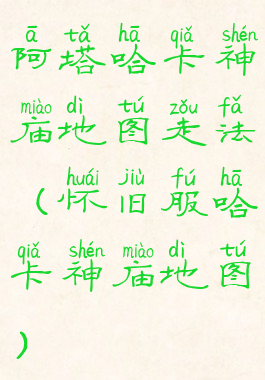 ā tǎ hā qiǎ shén
阿塔哈卡神
miào dì tú zǒu fǎ
庙地图走法
huái jiù fú hā
(怀旧服哈
qiǎ shén miào dì tú
卡神庙地图
)